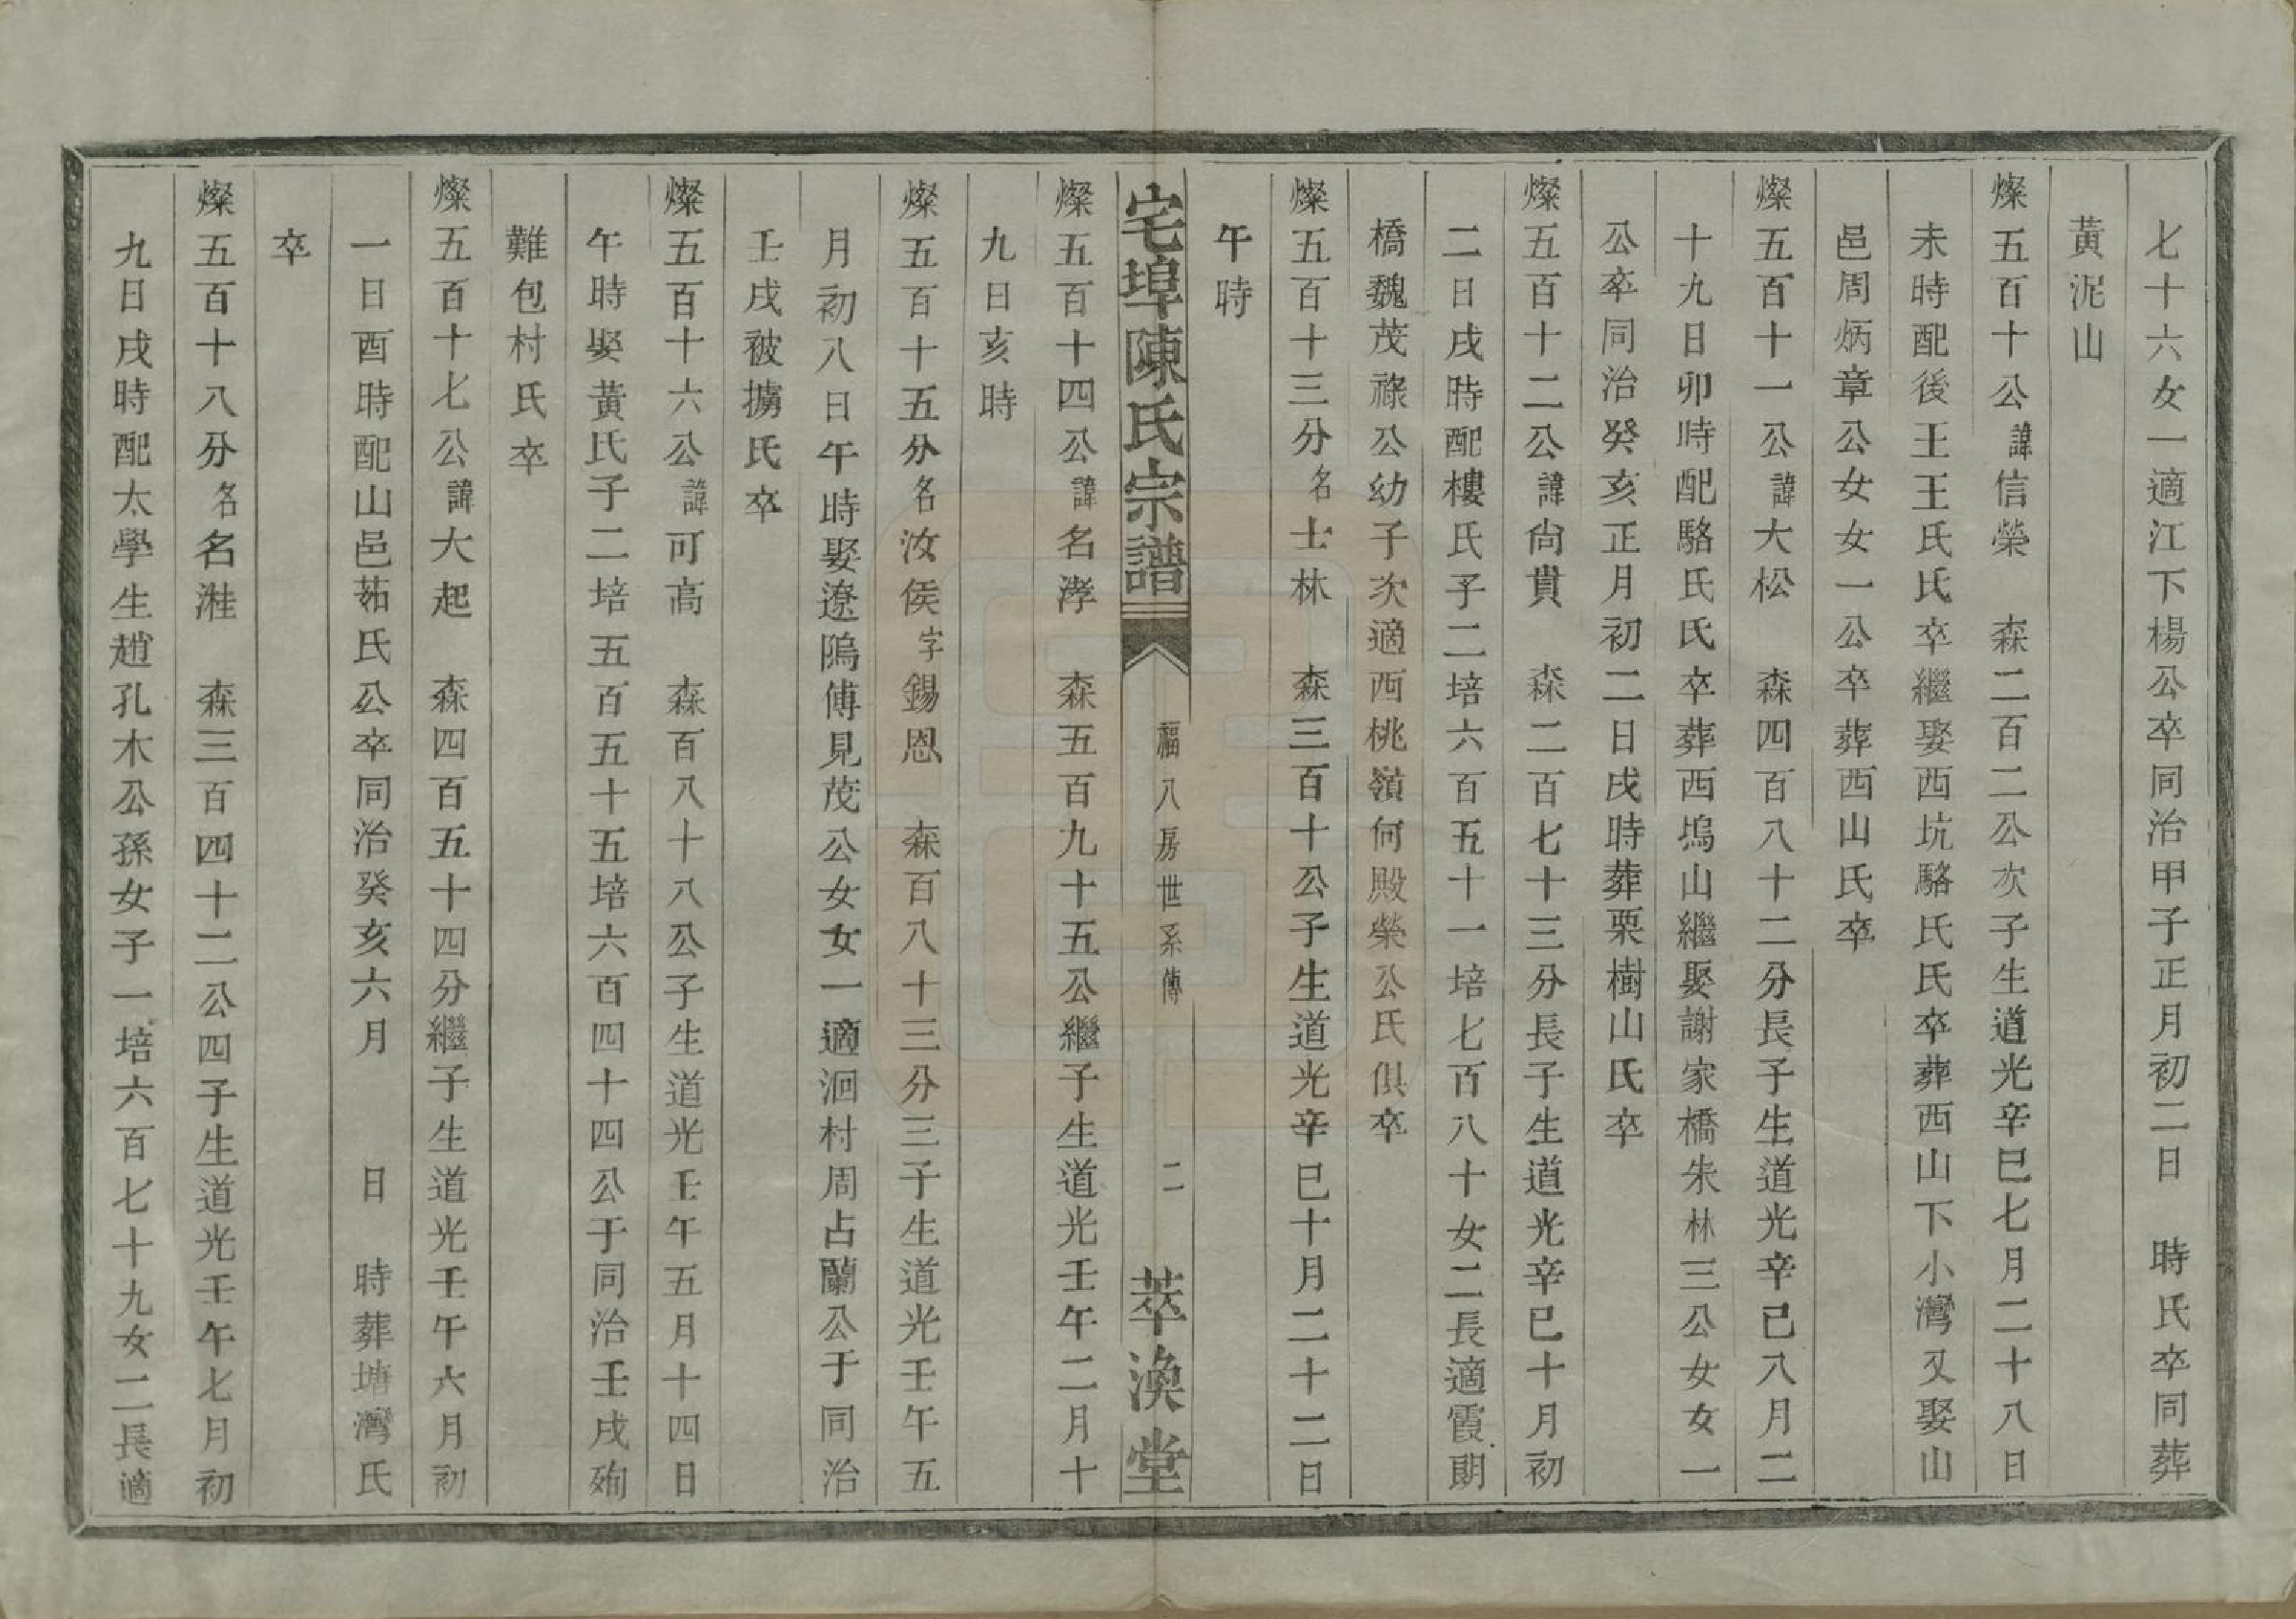 七十六女一適江下楊公卒同治甲子正月初二日　時氏卒同葬
黃泥山
燦五百十公諱信榮　森二百二公次子生道光辛巳七月二十八日
未時配後王王氏氏卒繼娶西坑駱氏氏卒葬西山下小灣又娶山
邑周炳章公女女一公卒葬西山氏卒
燦五百十一公諱大松　森四百八十二分長子生道光辛巳八月二
十九日卯時配駱氏氏卒葬西塢山繼娶謝家橋朱林三公女女一
公卒同治癸亥正月初二日戌時葬栗樹山氏卒
燦五百十二公諱尙貫　森二百七十三分長子生道光辛巳十月初
二日戌時配樓氏子二培六百五十一培七百八十女二長適霞朗
橋魏茂祿公幼子次適西桃嶺何殿榮公氏俱卒
燦五百十三分名士林　森三百十公子生道光辛巳十月二十二日
午時
宅埠陳氏宗譜　福八房世系傳　二　萃渙堂
燦五百十四公諱名涍　森五百九十五公繼子生道光壬午二月十
九日亥時
燦五百十五分名汝侯字錫恩　森百八十三分三子生道光壬午五
月初八日午時娶遼隖傅見茂公女女一適洄村周占蘭公于同治
壬戌被擄氏卒
燦五百十六公諱可高　森百八十八公子生道光壬午五月十四日
午時娶黃氏子二培五百五十五培六百四十四公于同治壬戌殉
難包村氏卒
燦五百十七公諱大起　森四百五十四分繼子生道光壬午六月初
一日酉時配山邑茹氏公卒同治癸亥六月　日　時葬塘灣氏
卒
燦五百十八分名名溎　森三百四十二公四子生道光壬午七月初
九日戌時配太學生趙孔木公孫女子一培六百七十九女二長適